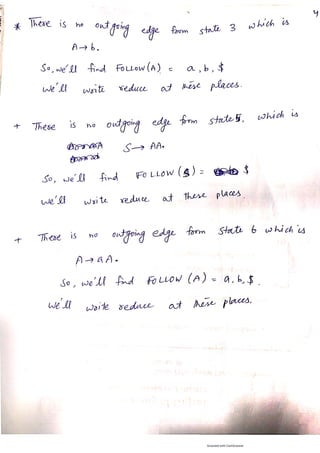 4
* There is no outgoing edge form state 3 which is
A → b.
So, we'll find FOLLOW(A) = a, b, $
we'll write reduce at these places.
+ These is no outgoing edge form state 5, which is
S → AA.
So, we'll find FOLLOW(S) = $
we'll write reduce at these places.
+ There is no outgoing edge form state 6 which is
A → aA.
So, we'll find FOLLOW (A) = a, b, $.
we'll write reduce at these places.
Scanned with CamScanner